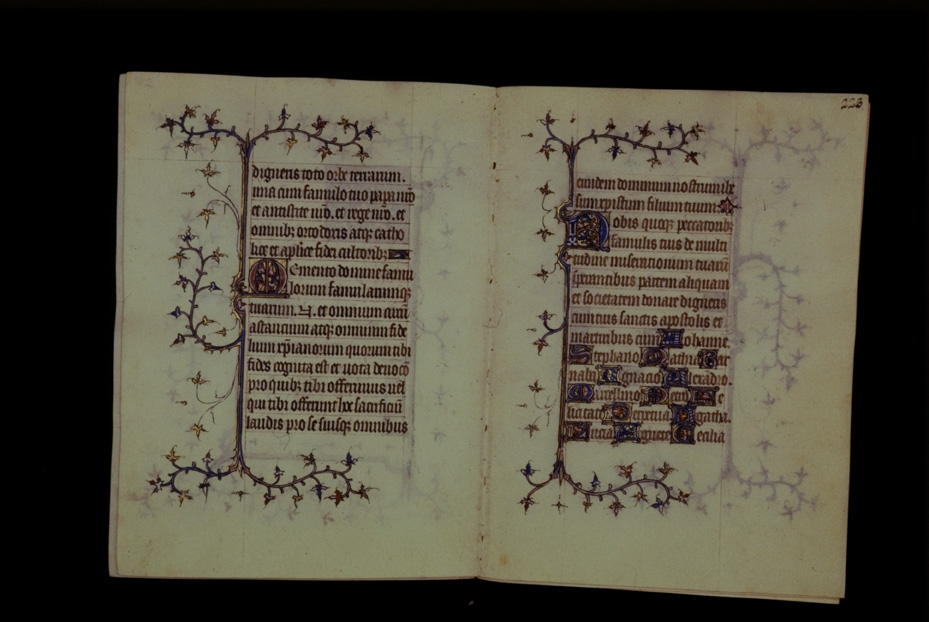 digneris toto orbe terrarum.
una cum famulo tuo papa nr̄o
et antistite nr̄o. et rege nr̄o. et
omnibꝫ ortodoxis atqꝫ catho
lice et aplice fidei cultoribꝫ
Memento domine famu
lorum famularumqꝫ
tuarum. N. et omnium circū
astantium atqꝫ omnium fide
lium xp̄ianorum quorum tibi
fides cognita est et nota deuocō
pro quibꝫ tibi offerimus uel
qui tibi offerunt hoc sacrificiū
laudis pro se suisqꝫ omnibus
223
eundem dominum nostrum ihe
sum cristum filium tuum
Nobis quoqꝫ peccatoribꝫ
famulis tuis de multi
tudine miserationum tuarū
sperantibus partem aliquam
et societatem donare digneris
cum tuis sanctis apostolis et
martiribus cum Iohanne.
Stephano Mathia Bar
naba Ignacio Alexadro.
Marcellino Petro Fe
licitate Perpetua Agatha.
Lucia Agnete Cecilia